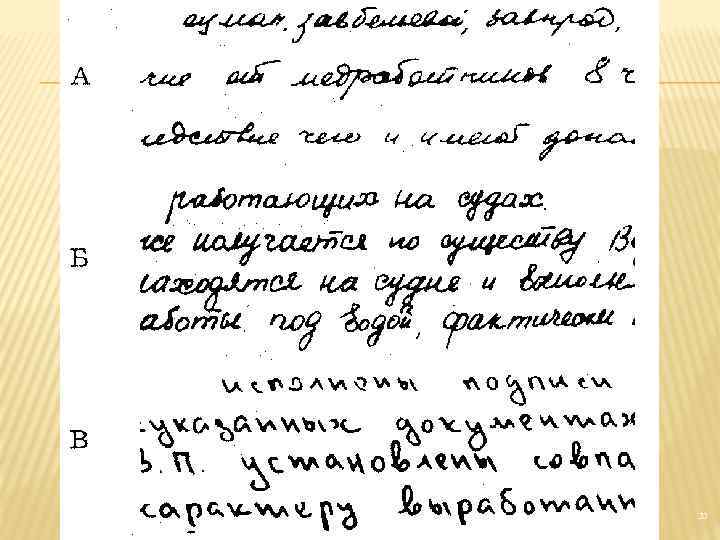 завбельевой, завпрод,
А
чие от медработников 8 ч
ледствие чего и имеют дона
работающих на судах
же получается по существу В
Б
находятся на судне и выполн
аботы под водой, фактически
исполнены подписи
указанных документах
В
В.П. установлены совпа
характеру выработанн
20